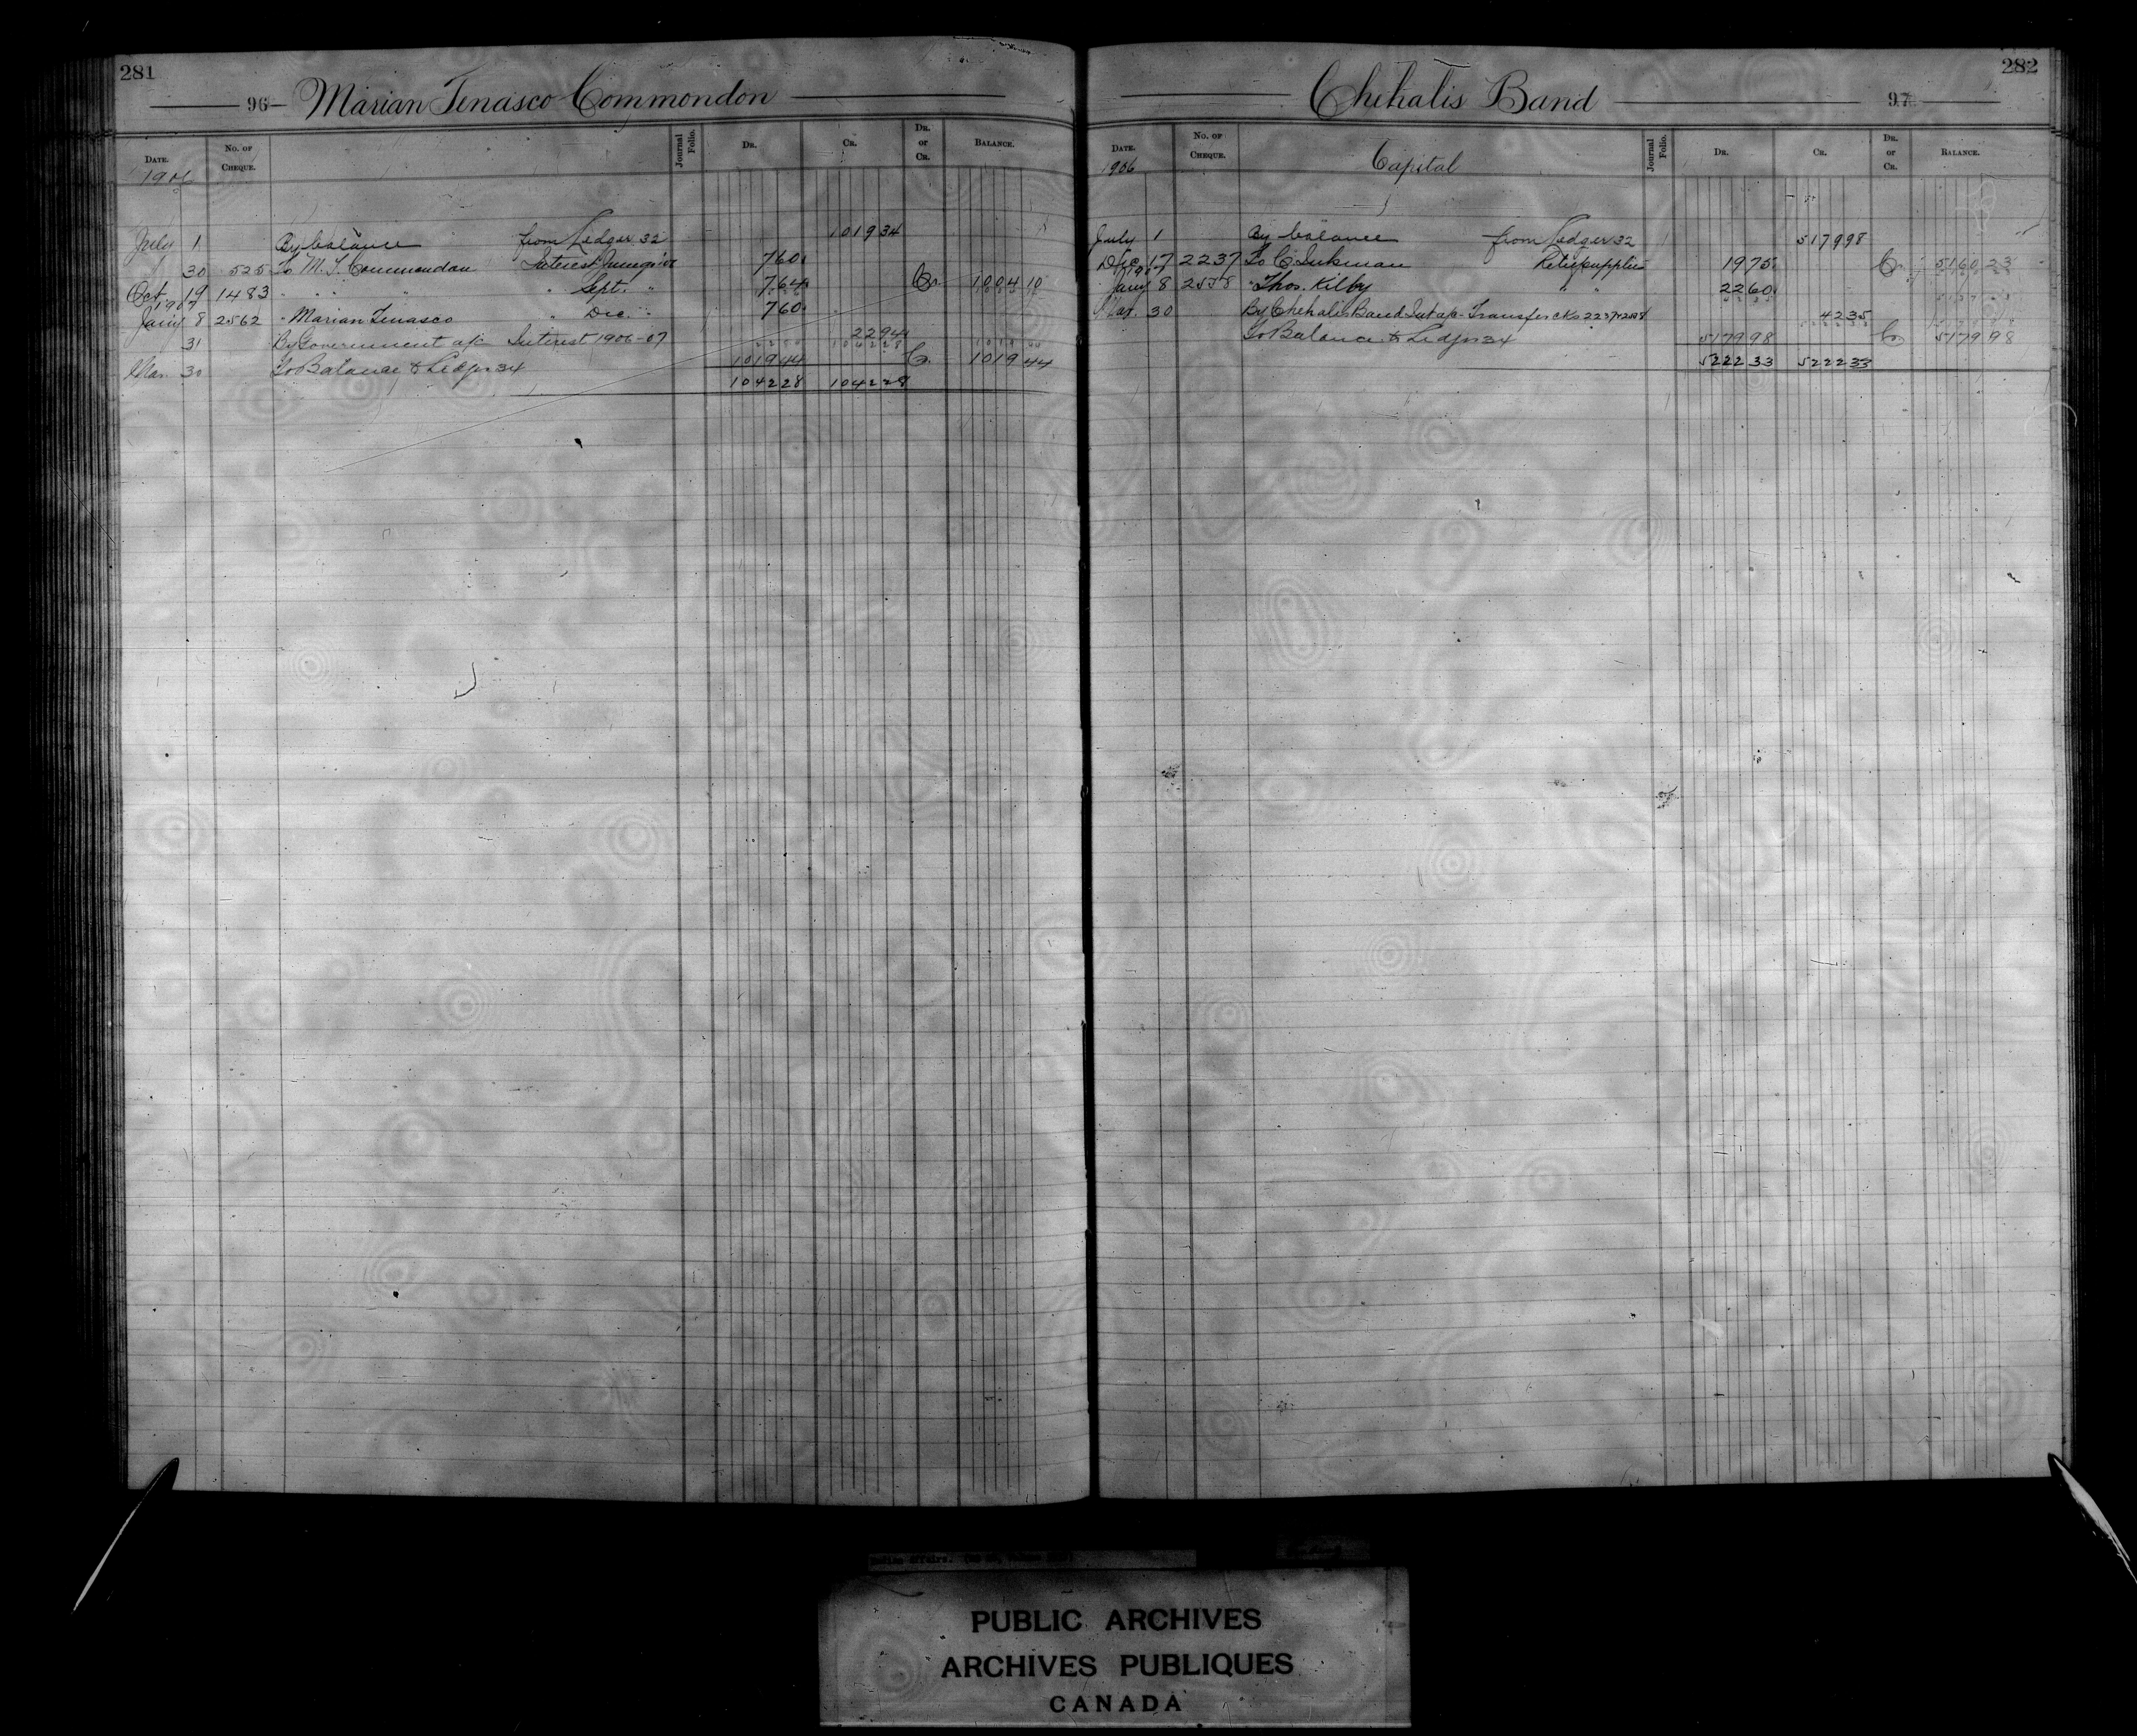 281
96 Marian Tenasco Commondon
DATE. No. OF CHEQUE. Journal Folio. DR. CR. DR. or CR. BALANCE.
1906
July 1 By balance from Ledger 32 1019 34
30 525 To M. T. Commondon Interest June 7 60
Oct. 19 1483 " " " " Sept. " 7 64 Cr. 1004 10
1907
Jany 8 2562 " Marian Tenasco " Dec. " 7 60
31 By Government a/c Interest 1906-07 22 94
Mar. 30 To Balance to Ledger 34 1019 44 Cr. 1019 44
1042 28 1042 28
282
Chehalis Band 97
DATE. No. OF CHEQUE. Capital Journal Folio. DR. CR. DR. or CR. BALANCE.
1906
July 1 By balance from Ledger 32 5179 98
Dec. 17 2237 To C. Inkman Relief supplies 19 75 Cr. 5160 23
1907
Jany 8 2558 " Thos. Kilby " " 22 60
Mar. 30 By Chehalis Band Int a/c Transfer cks 2237 & 2558 42 35
To Balance to Ledger 34 5179 98 Cr 5179 98
5222 33 5222 33
PUBLIC ARCHIVES
ARCHIVES PUBLIQUES
CANADA